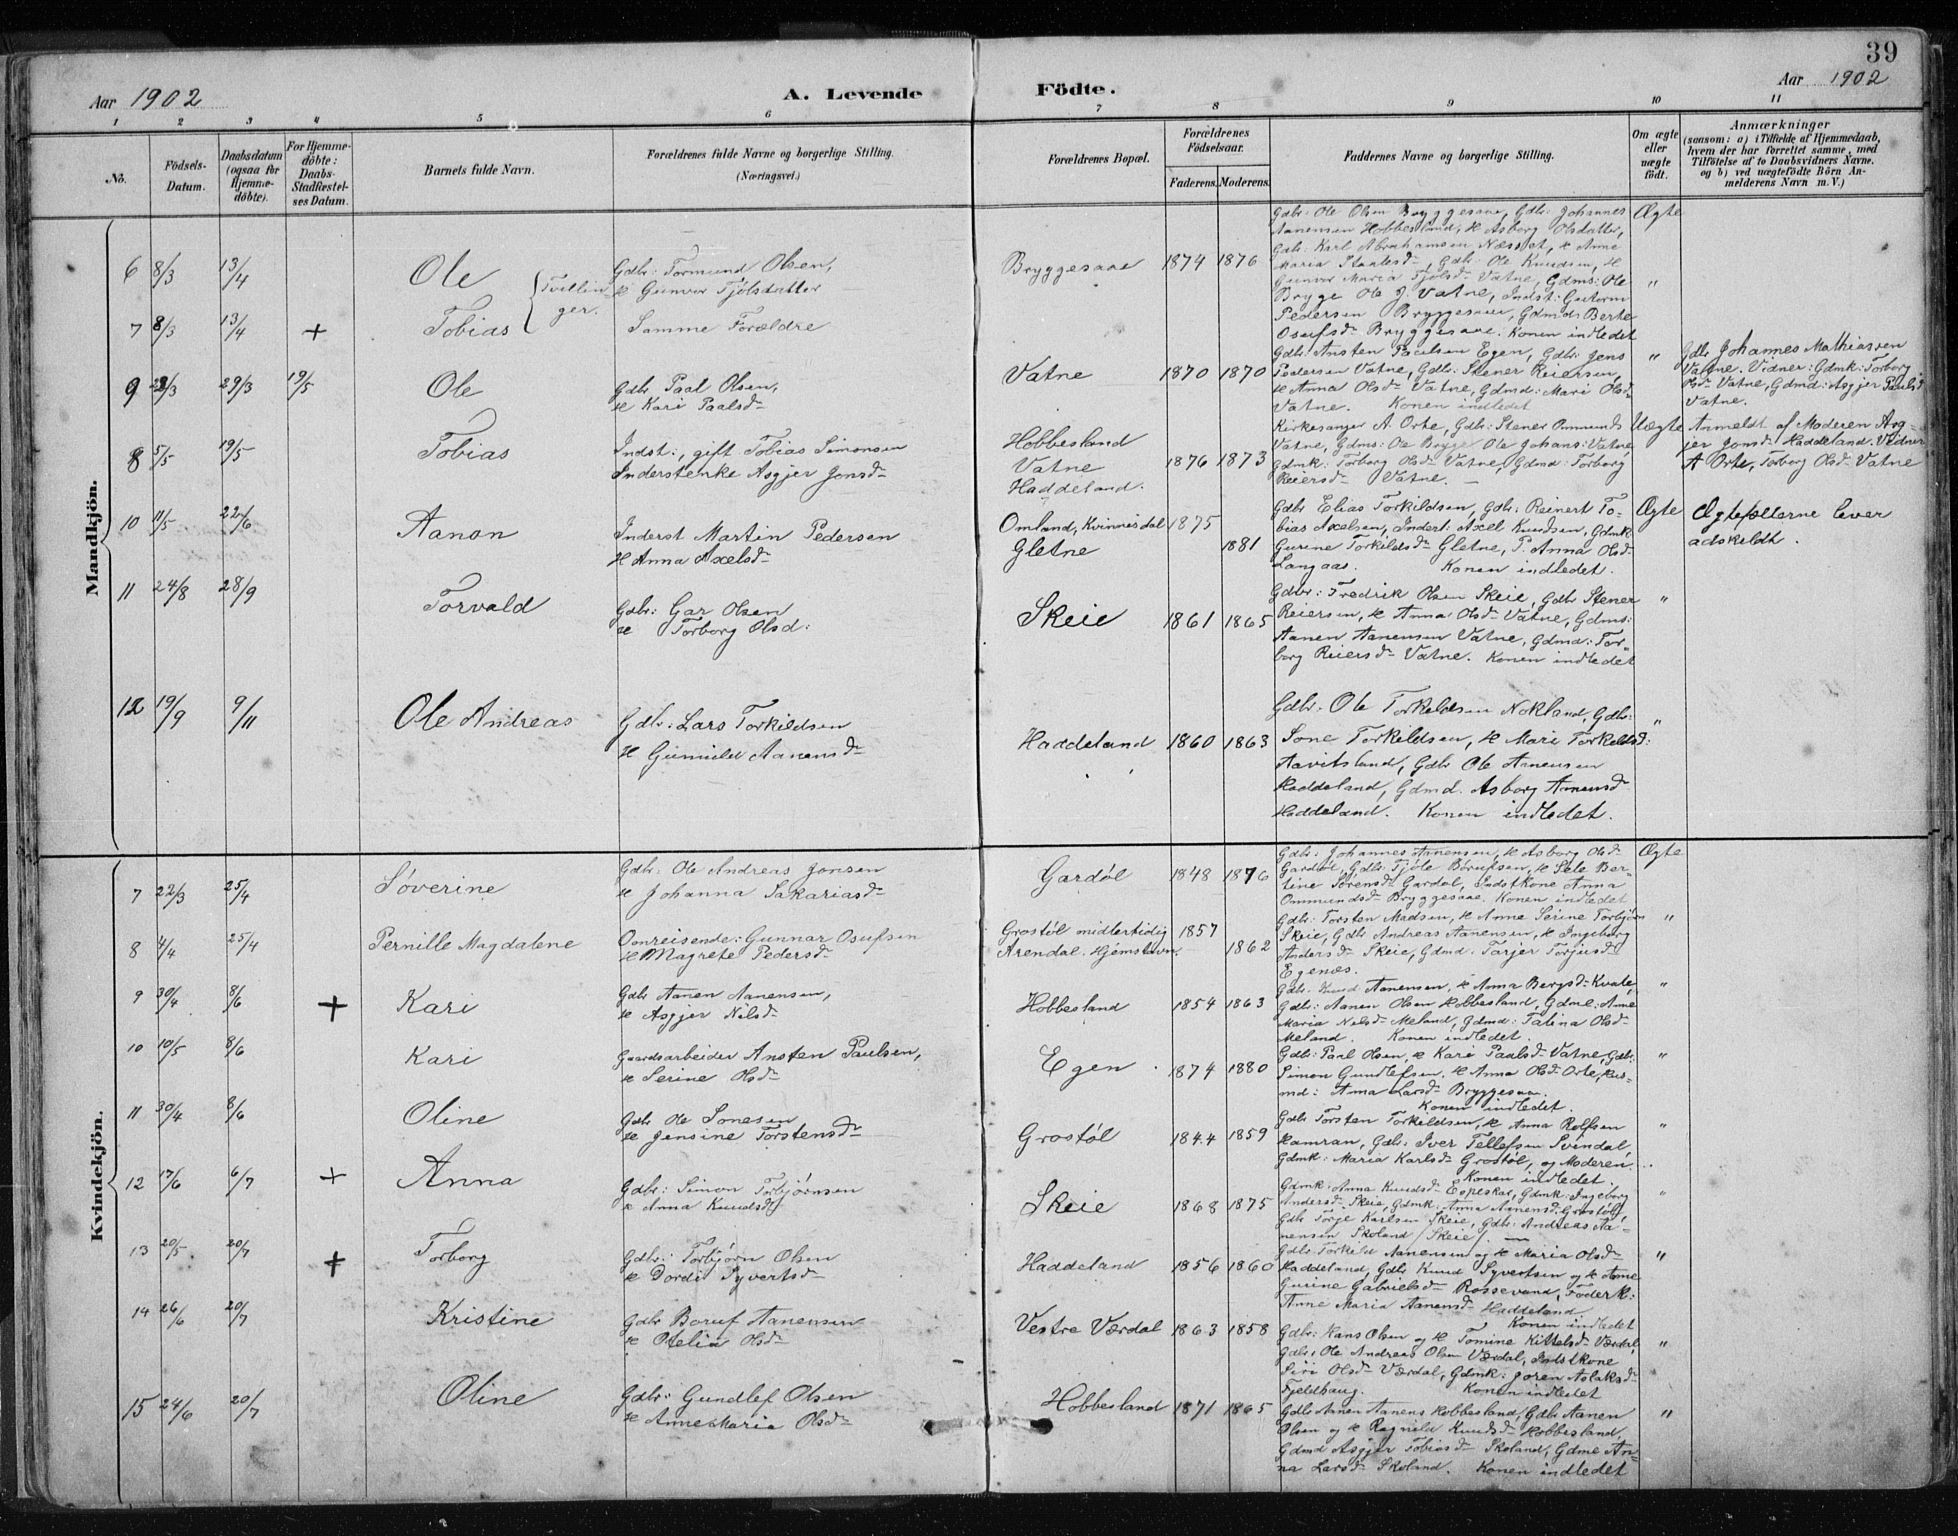 39
Aar 1902
A. Levende Födte.
Aar 1902
1 2 3 4 5 6 7 8 9 10 11
No.
Födsels-Datum.
Daabsdatum (ogsaa for Hjemmedöbte).
For Hjemmedöbte: Daabs-Stadfæstelses Datum.
Barnets fulde Navn.
Forældrenes fulde Navne og borgerlige Stilling.
(Næringsvei.)
Forældrenes Bopæl.
Forældrenes Födselsaar.
Faderens. Moderens.
Faddernes Navne og borgerlige Stilling.
Om ægte eller uægte födt.
Anmærkninger
(saasom: a) i Tilfælde af Hjemmedaab,
hvem der har forrettet samme, med
Tilföielse af to Daabsvidners Navne.
og b) ved uægtefödte Börn Anmelderens Navn m. V.)
Mandkjön.
6 8/3 13/4 Ole { Tvillinger. Gdbr: Tormund Olsen,
H Gunvor Tjølsdatter
Bryggesaae 1874 1876
Gdbr: Ole Olsen Bryggesaae, Gdbr: Johannes
Aanensen Hobbesland, H Asborg Olsdatter,
Gdbr: Karl Abrahamsen Næsset, H Anne
Maria Staalesd, Gdbr: Ole Knudsen, H
Gunvor Maria Tjølsd Vatne, Gdms: Ole
Brygge Ole J Vatne, Indst: Gutorm
Pedersen Bryggesaae, Gdmd: Berte
Osufsd Bryggesaae. Konen indledet
Ægte
7 8/3 13/4 + Tobias Samme Forældre "
9 23/3 29/3 19/5 Ole Gdbr Paal Olsen,
H Kari Paalsd
Vatne 1870 1870
Gdbr: Ansten Paulsen Egen, Gdbr: Jens
Pedersen Vatne, Gdbr: Stener Reiersen,
H Anna Olsd Vatne, Gdmd: Mari Olsd
Vatne. Konen indledet
"
Gdbr Johannes Mathiassen
Vatne. Vidner: Gdmk: Torborg
Olsd Vatne, Gdmd: Asgjer Paulsd
Vatne.
8 5/5 19/5 Tobias Indst:, gift Tobias Simonsen
Inderstenke Asgjer Jonsd
Hobbesland
Vatne
Haddeland.
1876 1873
Kirkesanger A Orte, Gdbr: Stener Ommunds
Vatne, Gdms: Ole Brygge Ole Johans: Vatne
Gdmk: Torborg Olsd Vatne, Gdmd: Torborg
Reiersd Vatne.
Uægte
Anmeldt af Moderen Asgjer Jonsd Haddeland. Vidner
A Orte, Torborg Olsd Vatne
10 11/5 22/6 Aanon Inderst Martin Pedersen
H Anna Axelsd
Omland, Kvinnesdal 1875
Gletne 1881
Gdbr Elias Torkildsen, Gdbr: Reinert Tobias Axelsen, Inderst: Axel Knudsen, Gdmk
Gurine Torkildsd Gletne, P. Anna Olsd
Langaas. Konen indledet.
Ægte
Ægtefællerne lever
adskeldt.
11 24/8 28/9 Torvald Gdbr: Gar Olsen
H Torborg Olsd:
Skeie 1861 1865
Gdbr: Fredrik Olsen Skeie, Gdbr Stener
Reiersen, H Anna Olsd Vatne, Gdms:
Aanen Aanensen Vatne, Gdmd: Torborg Reiersd Vatne. Konen indledet
"
12 19/9 9/11 Ole Andreas Gdbr: Lars Torkildsen
H Gunuld Aanensd
Haddeland 1860 1863
Gdbr: Ole Torkeldsen Nokland, Gdbr:
Sone Torkeldsen, H Mari Torkeldsd:
Aavitsland, Gdbr Ole Aanensen
Haddeland, Gdmd. Asborg Aanensd
Haddeland. Konen indledet.
"
Kvindekjön.
7 22/3 25/4 Søverine Gdbr: Ole Andreas Jonsen
H Johanna Sakariasd
Gardøl 1848 1876
Gdbr: Johannes Aanensen, H Asborg Olsd
Gardøl, Gdbr: Tjøle Børufsen, H Sele Bertine Sørensd Gardøl, Indstkone Anna
Ommundsd Bryggesaae. Konen indledet
Ægte
8 4/4 25/4 Pernille Magdalene Omreisende: Gunnar Osufsen
H Magrete Pedersd
Grostøl midlertidig 1857
Arendal Hjemstavn. 1862
Gdbr: Torsten Madsen, H Anne Serine Torbjørn
Skeie, Gdbr Andreas Aanensen, H Ingeborg
Andersd Skeie, Gdmd. Tarjer Torjusd
Egenæs.
"
9 30/4 8/6 + Kari Gdbr Aanen Aanensen,
H Asgjer Nilsd
Hobbesland 1854 1863
Gdbr: Knud Aanensen, H Anna Bergsd Kvale,
Gdbr: Aanen Olsen Hobbesland, Gdme: Anne
Maria Nilsd Meland, Gdmd: Talina Olsd
Meland. Konen indledet.
"
10 10/5 8/6 Kari Gaardsarbeider Ansten Paulsen,
H Serine Olsd
Egen 1874 1880
Gdbr: Paul Olsen, H Kari Paalsd Vatne, Gdbr:
Simon Gundlefsen, H Anna Olsd Orte, Husmd: Anna Larsd Bryggesaae.
Konen indledet.
"
11 30/4 8/6 Oline Gdbr Ole Sonesen
H Jensine Torstensd
Grostøl 1844 1859
Gdbr Torsten Torkildsen, H Anna Rolfsen
Hamran, Gdbr: Iver Tellefsen Svindal,
Gdmk: Maria Karlsd Grostøl, og Moderen.
Konen indledet.
"
12 17/6 6/7 + Anna Gdbr: Simon Torbjørnsen
H Anna Knudsd
Skeie 1868 1875
Gdmk: Anna Knudsd Eppeskar, Gdmk: Ingeborg
Andersd Skeie, Gdmk: Anna Aanensd Grostøl,
Gdbr Torje Karlsen Skeie, Gdbr: Andreas Aanensen Skoland (Skeie).
"
13 20/5 20/7 + Torborg Gdbr: Torbjørn Olsen
H Dordi Syvertsd
Haddeland 1856 1860
Gdbr: Torkild Aanensen og H Maria Olsd
Haddeland, Gdbr Knud Syvertsen og H Anne
Gurine Gabrielsd Rossevand, Føderk:
Anne Maria Aanensd Haddeland
Konen indledet
"
14 26/6 20/7 Kristine Gdbr Boruf Aanensen
H Otelia Olsd
Vestre Værdal 1863 1858
Gdbr: Hans Olsen og H Tomine Kittelsd Værdal,
Gdbr: Ole Andreas Olsen Værdal, Indstkone
Siri Olsd Værdal, Gdmk: Joren Aslaksd
Fjeldhaug. Konen indledet
"
15 24/6 20/7 Oline Gdbr: Gundlef Olsen
H Anne Maria Olsd
Hobbesland 1871 1865
Gdbr Aanen Aanens Hobbesland, Gdbr Aanen
Olsen og H Ragnild Knudsd Hobbesland,
Gdmd Asgjer Tobiasd Skoland, Gdme Anna Larsd Skoland. Konen indledet
"